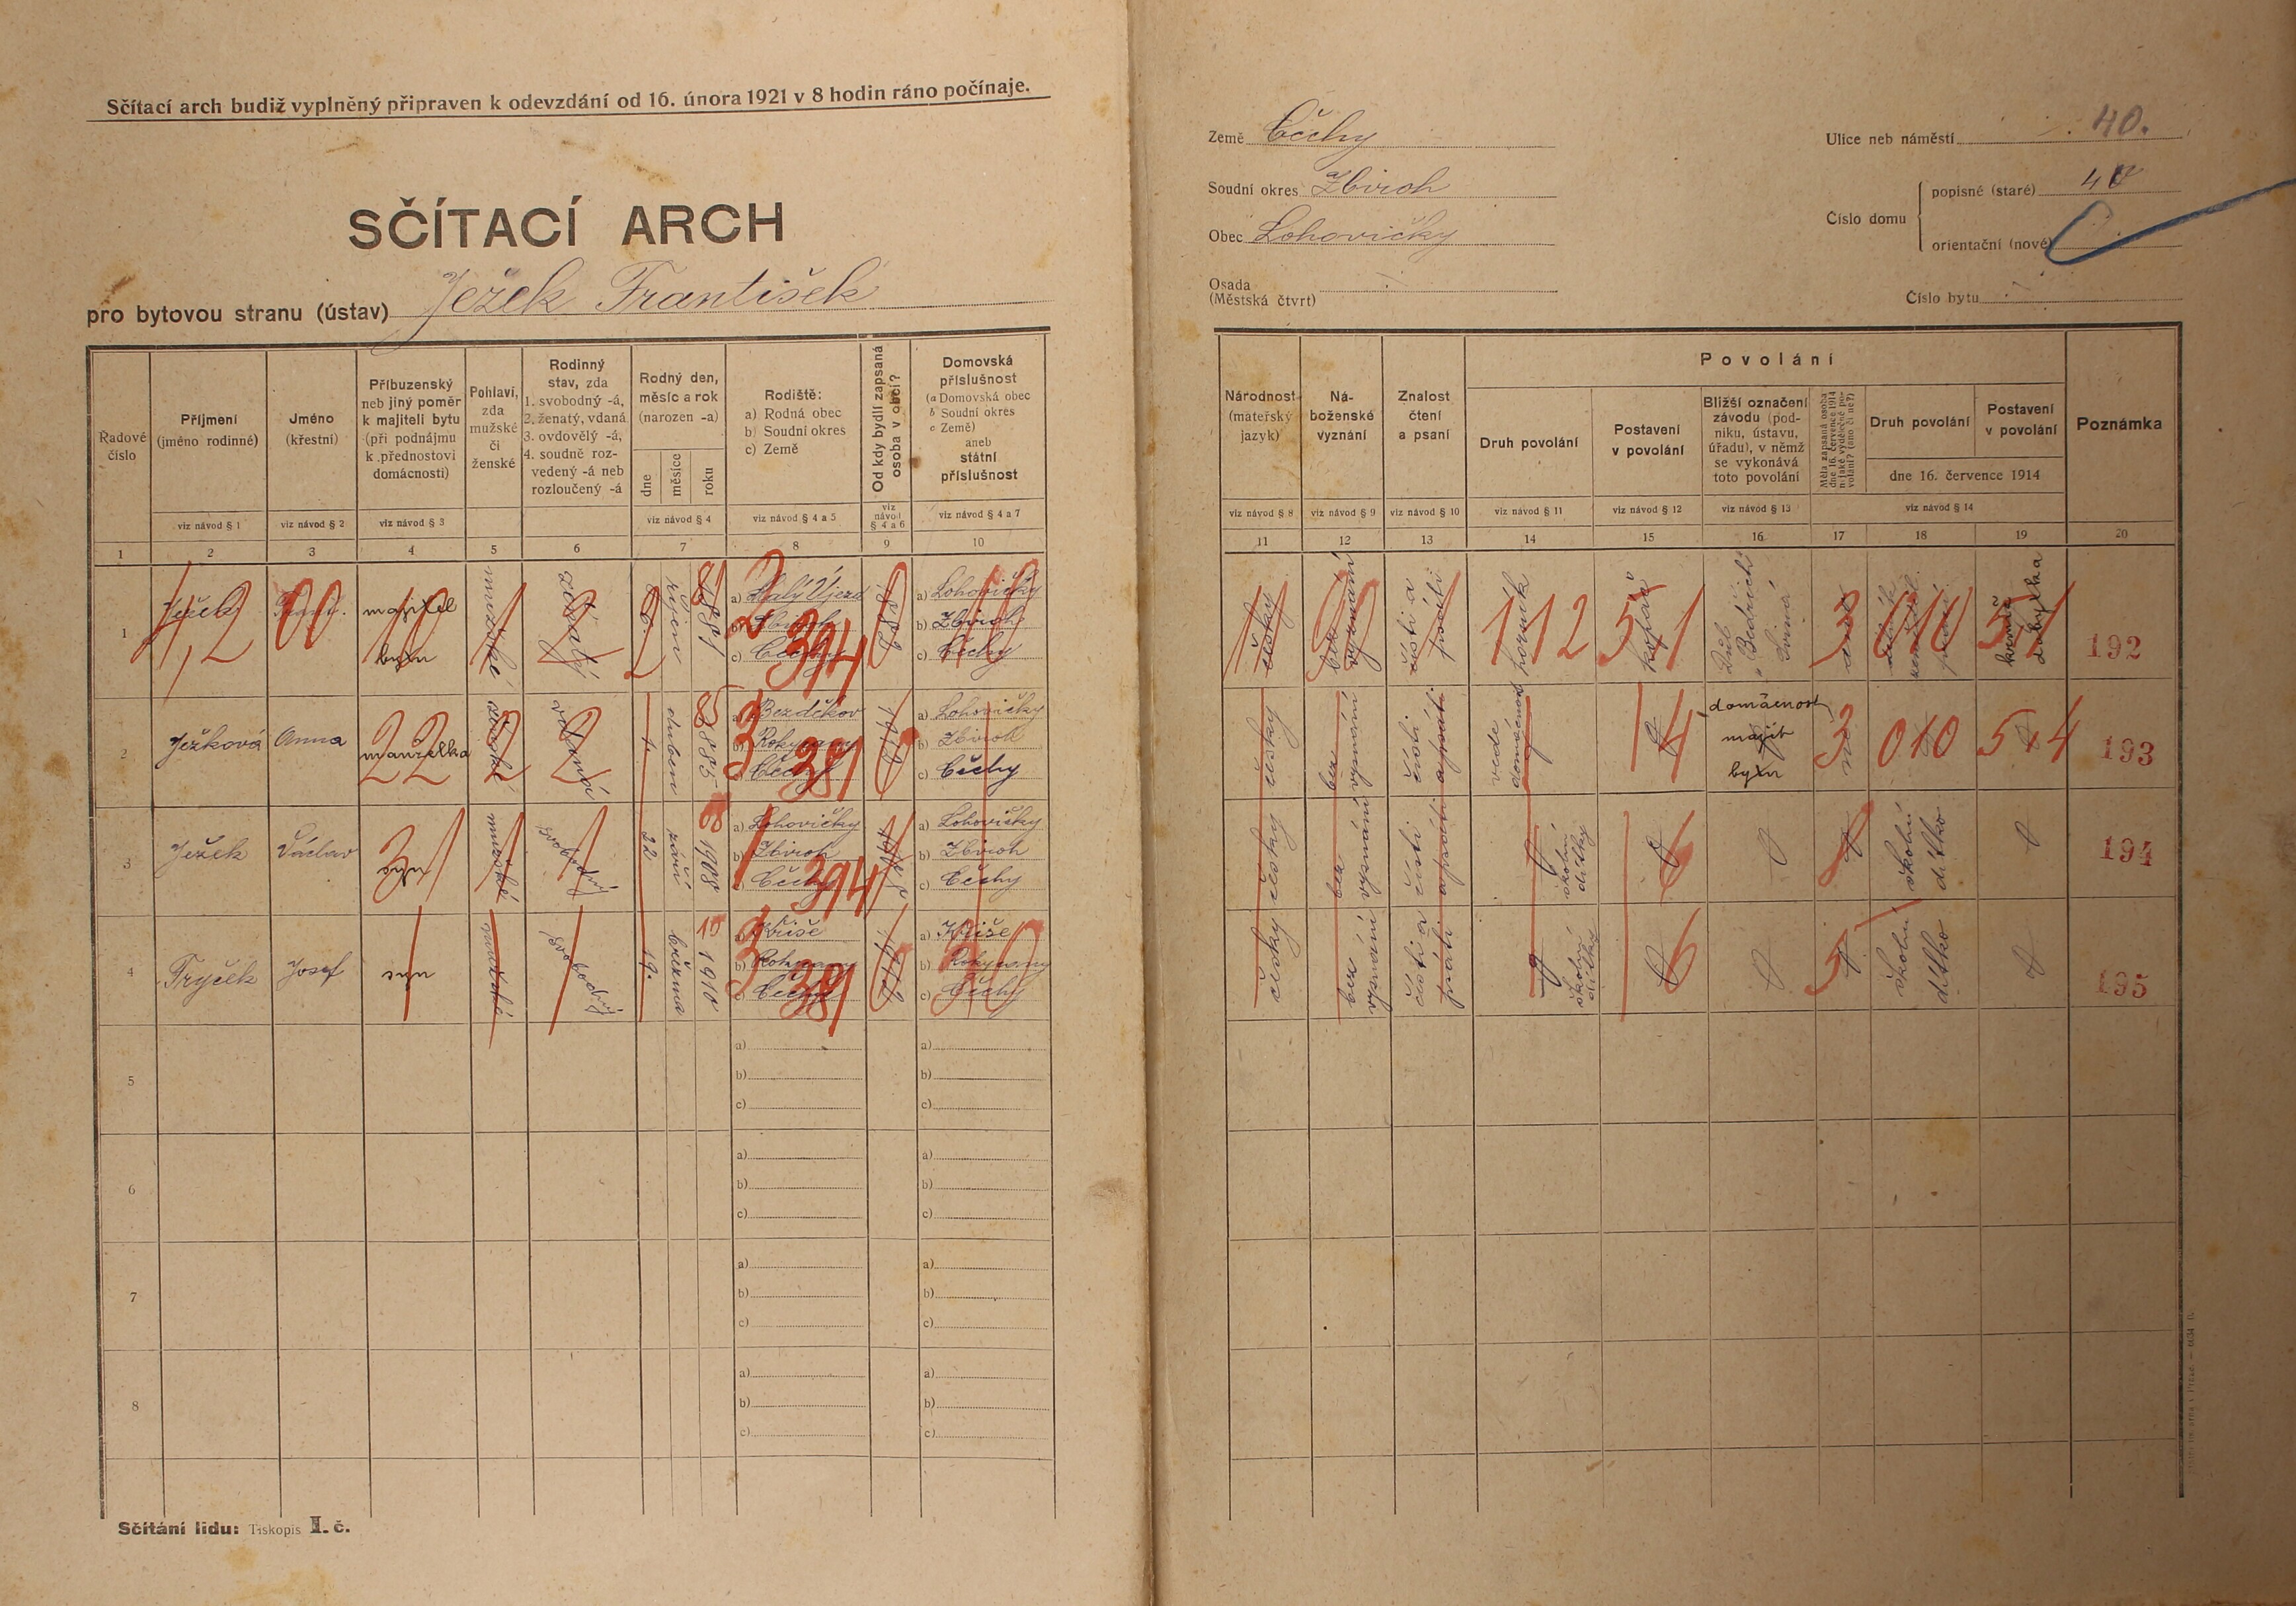 Sčítací arch budiž vyplněný připraven k odevzdání od 16. února 1921 v 8 hodin ráno počínaje.
SČÍTACÍ ARCH
pro bytovou stranu (ústav) Ježek František
Řadové číslo
Příjmení (jméno rodinné)
viz návod § 1
Jméno (křestní)
viz návod § 2
Příbuzenský neb jiný poměr k majiteli bytu (při podnájmu k přednostovi domácnosti)
viz návod § 3
Pohlaví, zda mužské či ženské
Rodinný stav, zda
1. svobodný -á,
2. ženatý, vdaná
3. ovdovělý -á,
4. soudně rozvedený -á neb rozloučený -á
Rodný den, měsíc a rok (narozen -a)
dne měsíce roku
viz návod § 4
Rodiště:
a) Rodná obec
b) Soudní okres
c) Země
viz návod § 4 a 5
Od kdy bydlí zapsaná osoba v obci?
viz návod § 4 a 6
Domovská příslušnost
(a Domovská obec
b Soudní okres
c Země)
aneb státní příslušnost
viz návod § 4 a 7
1 2 3 4 5 6 7 8 9 10
1 Ježek majitel bytu mužské ženatý 6. říjen 1881
a) Malý Újezd
b) Zbiroh
c) Čechy
394
a) Lohovičky
b) Zbiroh
c) Čechy
2 Ježková Anna manželka ženské vdaná duben 1885
a) Bezděkov
b) Rokycany
c) Čechy
381
a) Lohovičky
b) Zbiroh
c) Čechy
3 Ježek Václav syn mužské svobodný 22 září 1908
a) Lohovičky
b) Zbiroh
c) Čechy
394
a) Lohovičky
b) Zbiroh
c) Čechy
4 Tryček Josef syn mužské svobodný 19. března 1910
a) Kříše
b) Rokycany
c) Čechy
381
a) Kříše
b) Rokycany
c) Čechy
5 a) a)
b) b)
c) c)
6 a) a)
b) b)
c) c)
7 a) a)
b) b)
c) c)
8 a) a)
b) b)
c) c)
Sčítání lidu: Tiskopis I. č.
Země Čechy
Soudní okres Zbiroh
Obec Lohovičky
Osada (Městská čtvrt)
Ulice neb náměstí 40.
Číslo domu
popisné (staré) 40
orientační (nové)
Číslo bytu
Národnost (mateřský jazyk)
viz návod § 8
Náboženské vyznání
viz návod § 9
Znalost čtení a psaní
viz návod § 10
Povolání
Druh povolání
viz návod § 11
Postavení v povolání
viz návod § 12
Bližší označení závodu (podniku, ústavu, úřadu), v němž se vykonává toto povolání
viz návod § 13
Měla zapsaná osoba dne 16. července 1914 nějaké výdělečné povolání? (ano či ne?)
Druh povolání
Postavení v povolání
dne 16. července 1914
viz návod § 14
Poznámka
11 12 13 14 15 16 17 18 19 20
česky bez vyznání čísti a psáti horník kopáč Důl Bedřich ano 192
112 51 3
česky bez vyznání čísti a psáti vede domácnost domácnost majit bytu ne 193
česky bez vyznání čísti a psáti školní dítko školní dítko 194
česky bez vyznání čísti a psáti školní dítko školní dítko 195